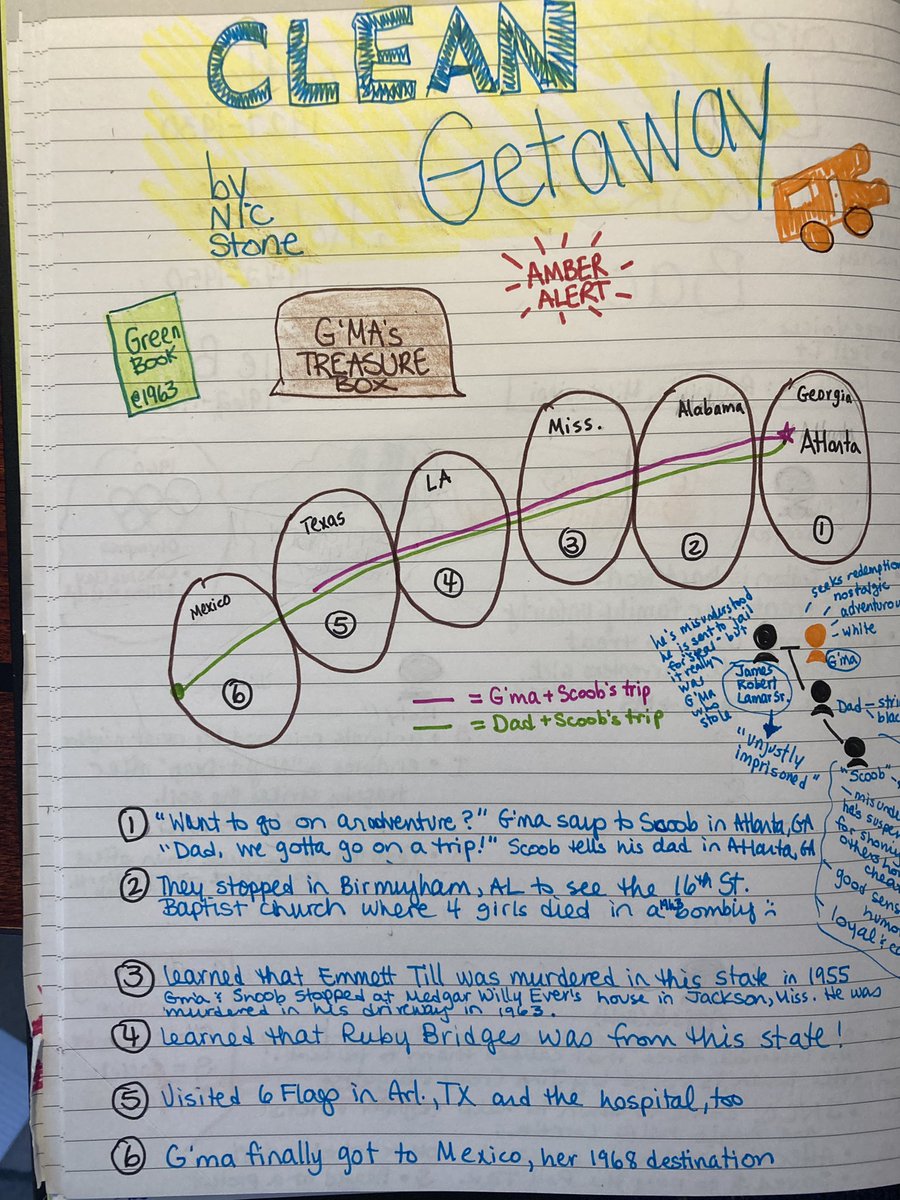 CLEAN
Getaway
by
NIC
Stone
AMBER
ALERT
Green
BOOK
@1963
G'MA's
TREASURE
BOX
Georgia
Atlanta
①
Alabama
②
Miss.
③
LA
④
Texas
⑤
Mexico
⑥
= G'ma + Scoob's trip
= Dad + Scoob's trip
seeks redemption
nostalgic
adventurou
- white
G'ma
he's misunderstood
he is sent to jail
for 
it really
was
G'MA
who
stole
James
Robert
Lamar Sr.
"unjustly
imprisoned"
Dad - stri
blac
"Scoob" -
- misunde
he's suspen
for
others
chea
good sens
humo
loyal &
① "Want to go on an adventure?" G'ma says to Scoob in Atlanta, GA
"Dad, we gotta go on a trip!" Scoob tells his dad in Atlanta, GA
② They stopped in Birmingham, AL to see the 16th St.
Baptist Church where 4 girls died in a 1963 bombing :
③ Learned that Emmett Till was murdered in this state in 1955
Gma & Snoob stopped at Medgar Willy Ever's house in Jackson, Miss. He was
murdered in his driveway in 1963.
④ Learned that Ruby Bridges was from this state!
⑤ Visited 6 Flags in Arl., TX and the hospital, too
⑥ G'ma finally got to Mexico, her 1968 destination